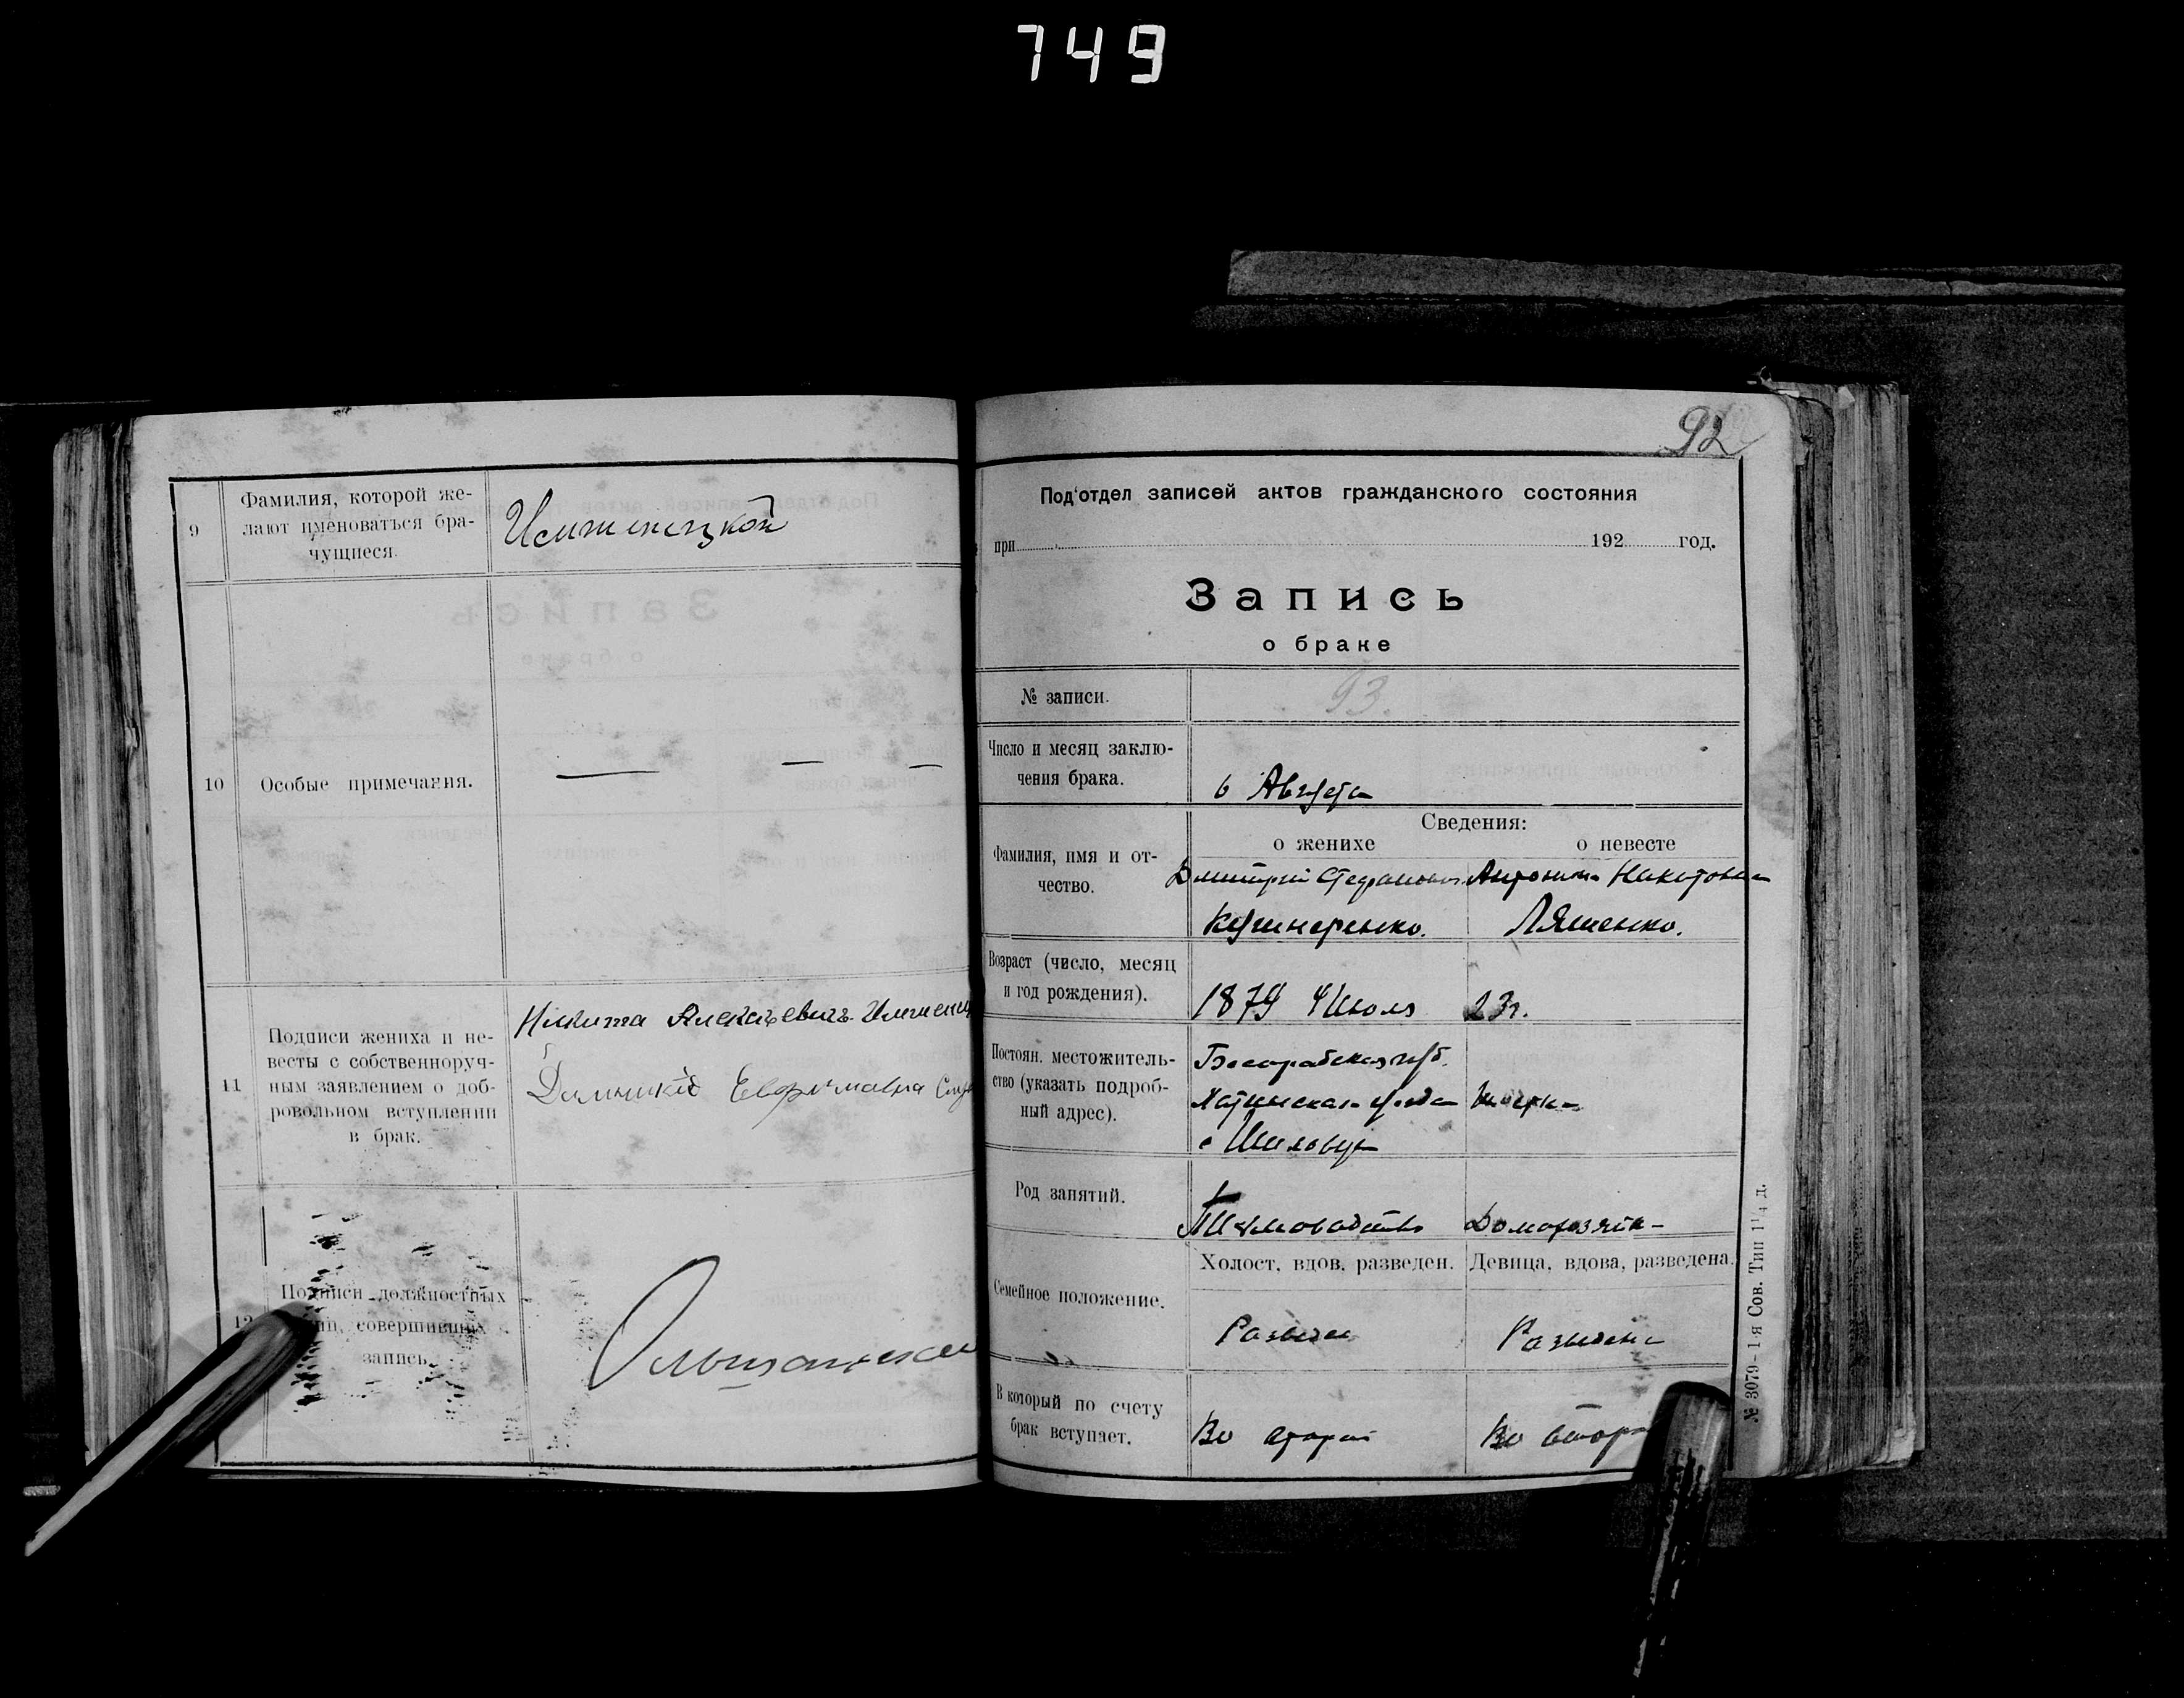 749
9
Фамилия, которой же-
лают именоваться бра-
чущиеся.
10
Особые примечания.
— — —
11
Подписи жениха и не-
весты с собственноруч-
ным заявлением о доб-
ровольном вступлении
в брак.
Никита Алексѣевичъ
12
Подписи должностных
лиц, совершивших
запись.
92
Под'отдел записей актов гражданского состояния
при 192 год.
Запись
о браке
№ записи.
93.
Число и месяц заклю-
чения брака.
6 Августа
Сведения:
о женихе о невесте
Фамилия, имя и от-
чество.
Дмитрий Стефанович Антонина Никитовна
Кушнеренко. Ляшенко.
Возраст (число, месяц
и год рождения).
1879 4 Июля 23г.
Постоян. местожитель-
ство (указать подроб-
ный адрес).
Бессарабская губ.
Хотинскаго уезда
с
Род занятий.
Домохозяйка
Семейное положение.
Холост, вдов, разведен. Девица, вдова, разведена.
Разведен Разведена
В который по счету
брак вступает.
Во второй Во второй
№ 3079-1-я Сов. Тип 1¼ д.